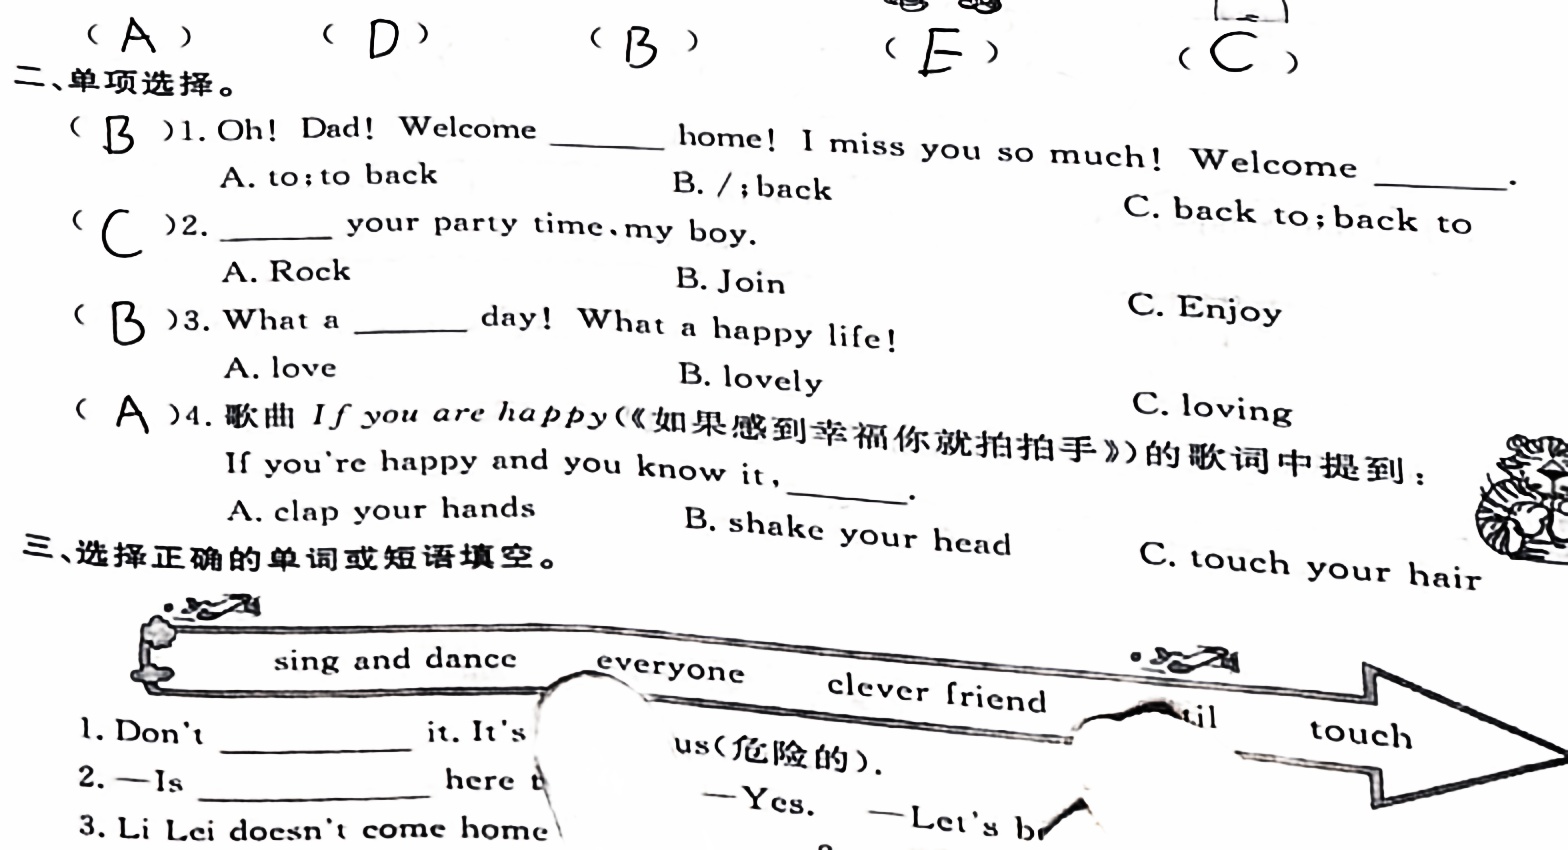 ( A ) ( D ) ( B ) ( E ) ( C )
二、单项选择。
( B )1. Oh! Dad! Welcome ______ home! I miss you so much! Welcome ______.
A. to;to back B. /;back C. back to;back to
( C )2. ______ your party time,my boy.
A. Rock B. Join C. Enjoy
( B )3. What a ______ day! What a happy life!
A. love B. lovely C. loving
( A )4. 歌曲 If you are happy(《如果感到幸福你就拍拍手》)的歌词中提到:
If you're happy and you know it,______.
A. clap your hands B. shake your head C. touch your hair
三、选择正确的单词或短语填空。
sing and dance everyone clever friend til touch
1. Don't ______ it. It's us(危险的).
2. —Is ______ here —Yes. —Let's
3. Li Lei doesn't come home